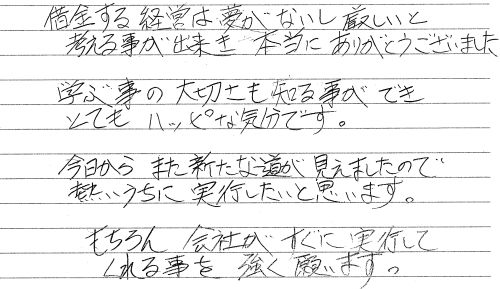 借金する経営は夢がないし厳しいと
考える事が出来き 本当に ありがとうございました
学ぶ事の 大切さも 知る事が でき
とても ハッピーな気分です。
今日から また新たな道が 見えましたので
熱いうちに 実行したいと思います。
もちろん 会社が すぐに 実行して
くれる事を 強く 願います。